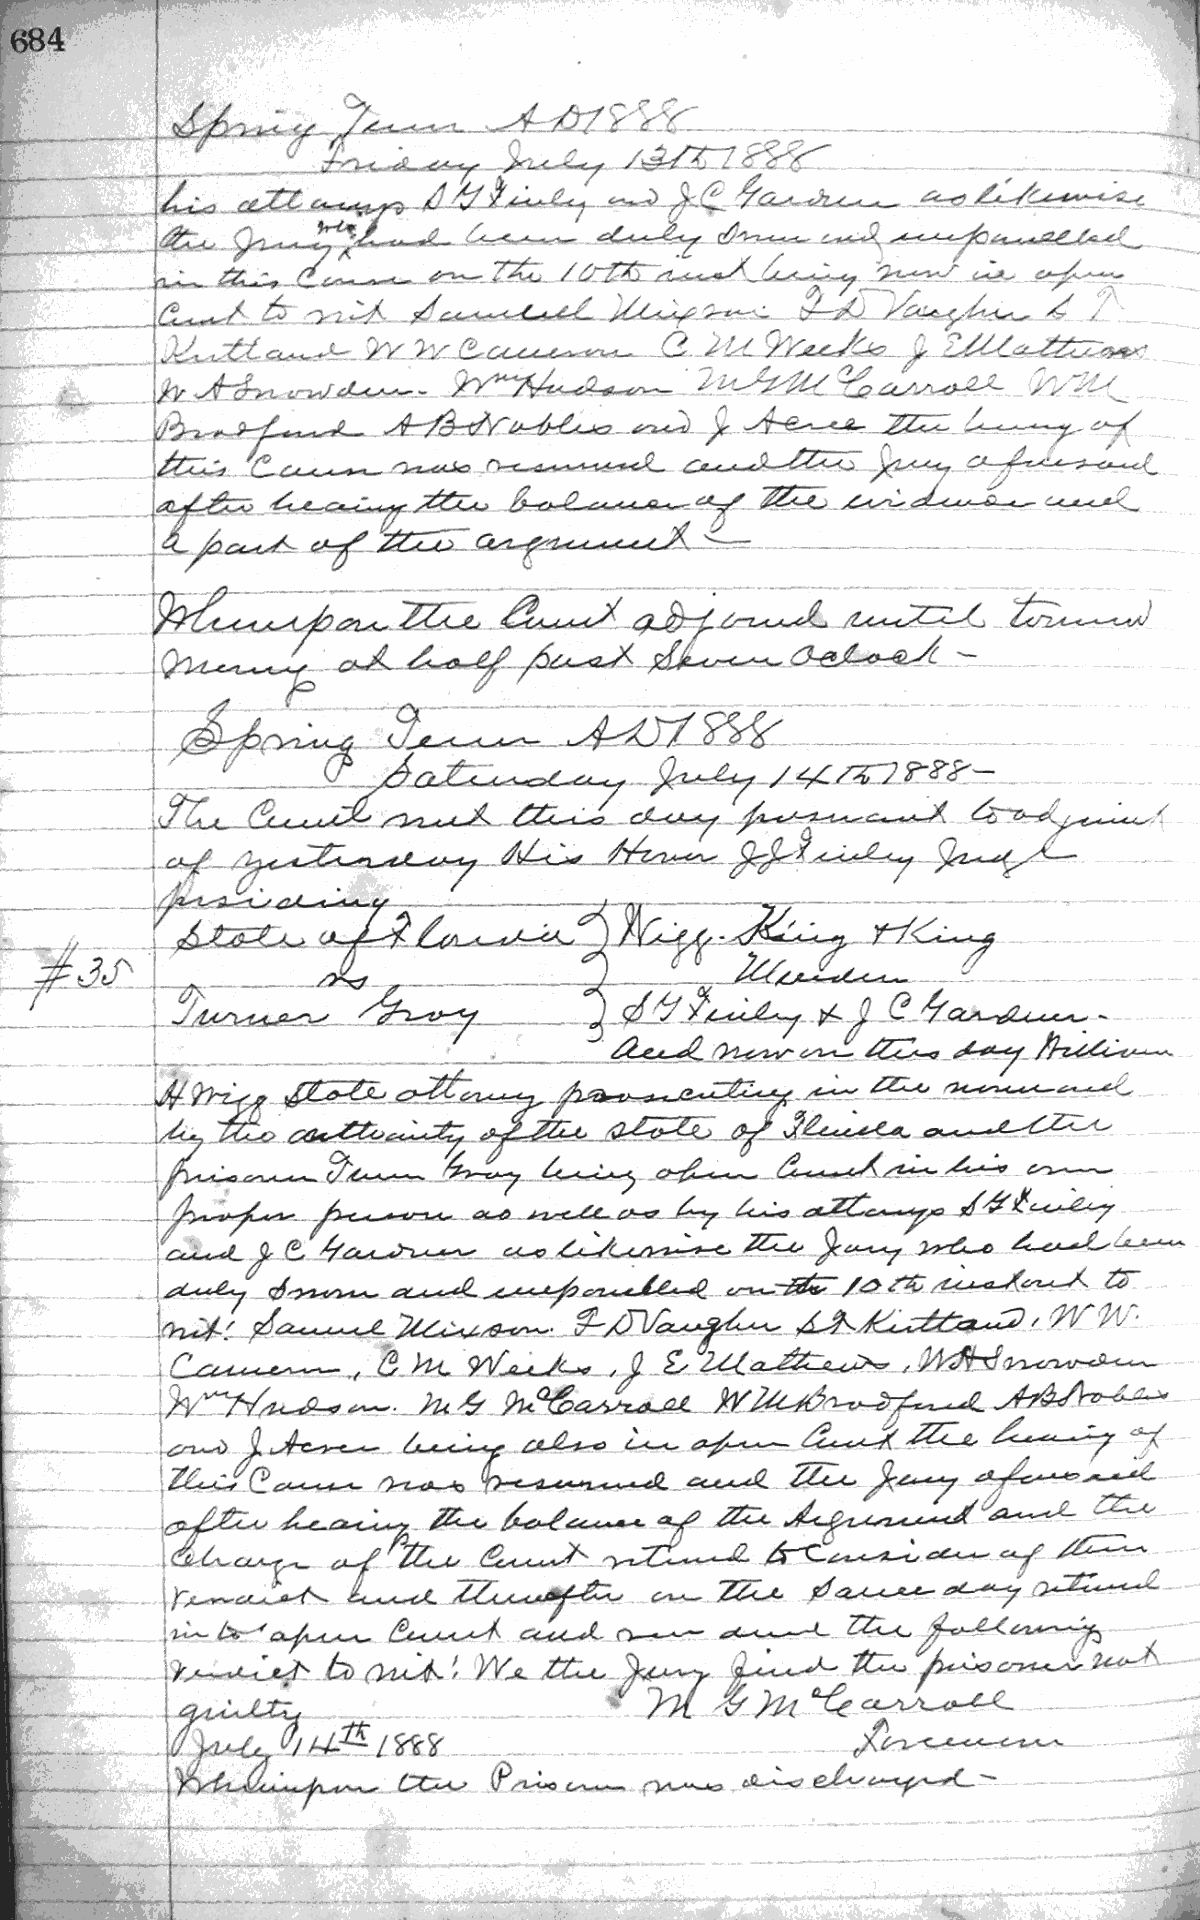 684
Spring Term AD 1888
Friday July 13th 1888
his attorneys S G Finley and J C Gardner as likewise
the Jury who had been duly sworn and impanelled
in this Cause on the 10th inst being now in open
Court to wit Samuel Mixson F D Vaughn S T
Kirtland W W Cameron C M Weeks J E Mathews
W A Snowden. Wm Hudson M G McCarroll W M
Bradford A B Nobles and J Acree the hearing of
this Cause was resumed and the Jury aforesaid
after hearing the balance of the evidence and
a part of the argument —
Whereupon the Court adjourned until tomorrow
morning at half past Seven Oclock —
Spring Term AD 1888
Saturday July 14th 1888 —
The Court met this day pursuant to adjournment
of yesterday His Honor J J Finley Judge
presiding
State of Florida } Wigg. King & King
#35 vs }
Turner Gray } S G Finley & J C Gardner —
And now on this day William
H Wigg State attorney prosecuting in the name and
by the authority of the state of Florida and the
prisoner Turner Gray being open Court in his own
proper person as well as by his attorneys S G Finley
and J C Gardner as likewise the Jury who had been
duly sworn and impanelled on the 10th instant to
wit! Samuel Mixson. F D Vaughn S T Kirtland, W W.
Cameron, C M Weeks, J E Mathews, W A Snowden
Wm Hudson. M G McCarroll W M Bradford A B Nobles
and J Acree being also in open Court the hearing of
this Cause was resumed and the Jury aforesaid
after hearing the balance of the Argument and the
Charge of the Court retired to Consider of their
verdict and thereafter on the same day returned
in to open Court and rendered the following
verdict to wit! We the Jury find the prisoner not
guilty M G McCarroll
July 14th 1888 Foreman
Whereupon the Prisoner was discharged —